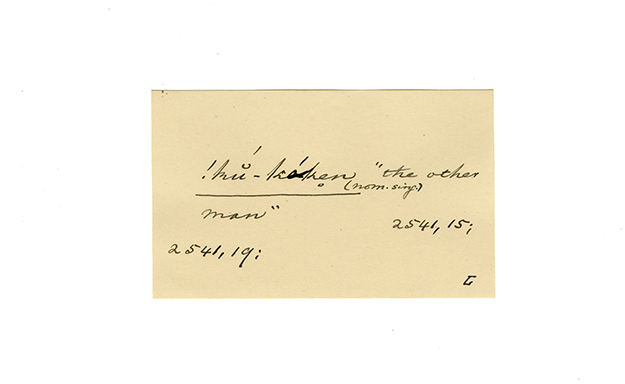 "the other
(nom. sing.)
man"
2541, 15;
2541, 19;